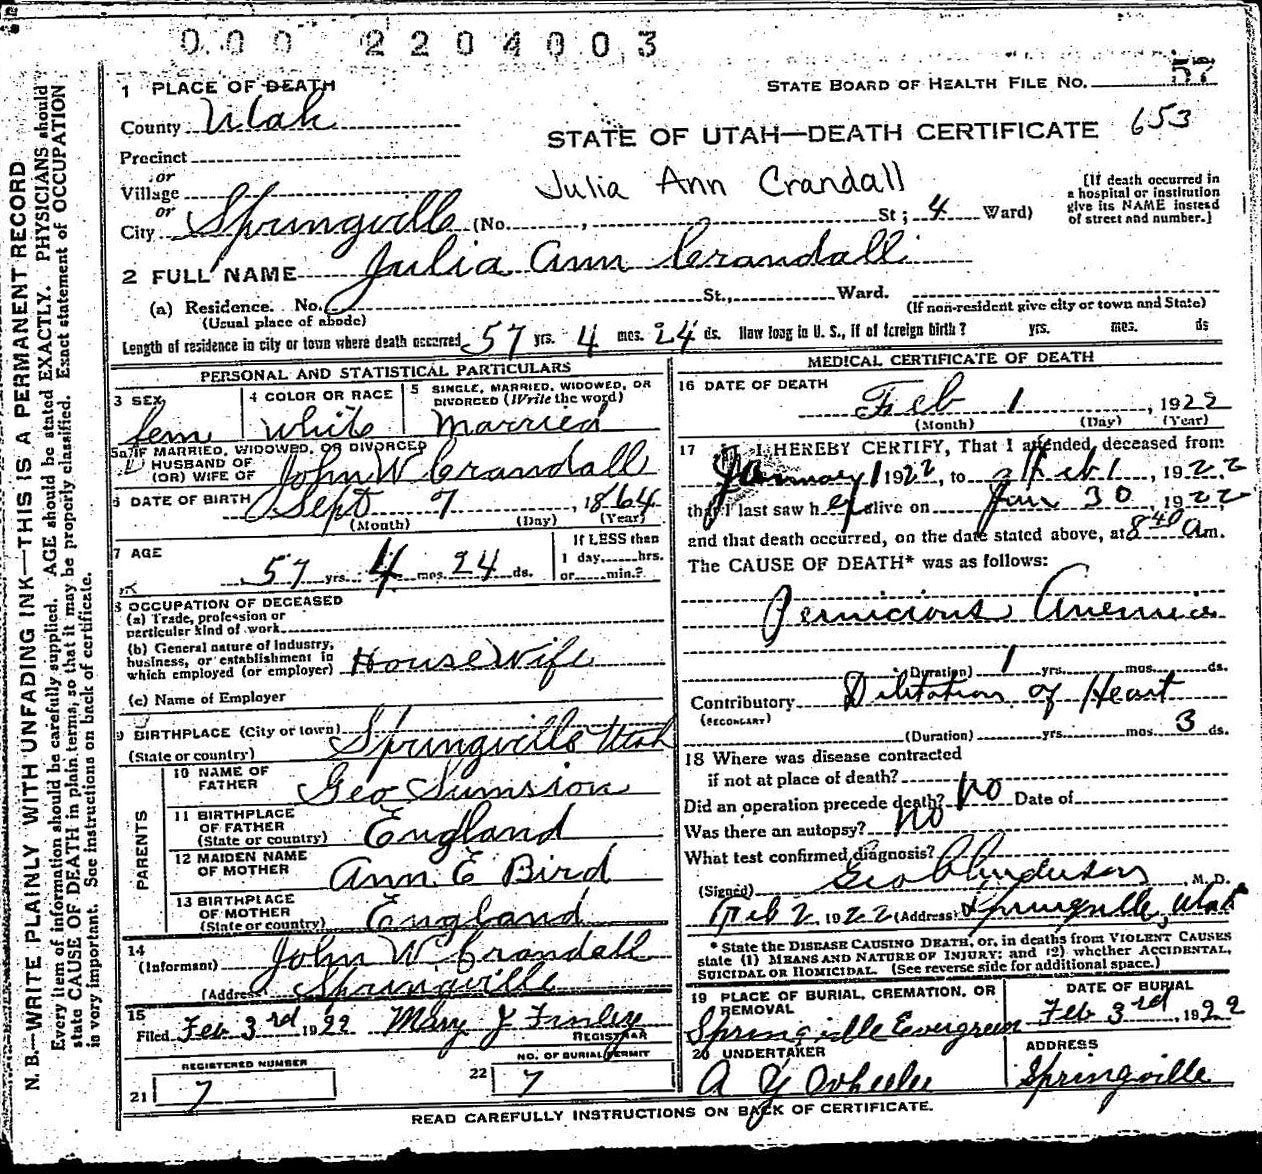 000 2204003
1 PLACE OF DEATH
STATE BOARD OF HEALTH FILE NO. 57
County Utah
STATE OF UTAH—DEATH CERTIFICATE 653
Precinct
or
Village
Julia Ann Crandall
[If death occurred in a hospital or institution give its NAME instead of street and number.]
or
City Springville (No. , St; 4 Ward)
2 FULL NAME Julia Ann Crandall
(a) Residence. No. St., Ward.
(Usual place of abode)
(If non-resident give city or town and State)
Length of residence in city or town where death occurred 57 yrs. 4 mos. 24 ds. How long in U. S., if of foreign birth? yrs. mos. ds
PERSONAL AND STATISTICAL PARTICULARS
3 SEX
fem
4 COLOR OR RACE
White
5 SINGLE, MARRIED, WIDOWED, OR DIVORCED (Write the word)
Married
5a IF MARRIED, WIDOWED, OR DIVORCED
HUSBAND OF
(OR) WIFE OF John W Crandall
6 DATE OF BIRTH Sept 7, 1864
(Month) (Day) (Year)
7 AGE
57 yrs. 4 mos. 24 ds.
If LESS than
1 day, hrs.
or min.?
8 OCCUPATION OF DECEASED
(a) Trade, profession or
particular kind of work
(b) General nature of industry,
business, or establishment in
which employed (or employer) House Wife
(c) Name of Employer
9 BIRTHPLACE (City or town) Springville Utah
(State or country)
PARENTS
10 NAME OF FATHER Geo Sumsion
11 BIRTHPLACE OF FATHER (State or country) England
12 MAIDEN NAME OF MOTHER Ann E Bird
13 BIRTHPLACE OF MOTHER (State or country) England
14
(Informant) John W Crandall
(Address) Springville
15
Filed Feb 3rd 1922 Mary J Finley
REGISTRAR
REGISTERED NUMBER
21 7
NO. OF BURIAL PERMIT
22 7
MEDICAL CERTIFICATE OF DEATH
16 DATE OF DEATH
Feb 1, 1922
(Month) (Day) (Year)
17 I HEREBY CERTIFY, That I attended, deceased from
January 1 1922, to Feb 1, 1922
that I last saw her alive on Jan 30 1922
and that death occurred, on the date stated above, at 8 40 a m.
The CAUSE OF DEATH* was as follows:
Pernicious Anemia
(Duration) 1 yrs. mos. ds.
Contributory Dilitation of Heart
(SECONDARY)
(Duration) yrs. mos. 3 ds.
18 Where was disease contracted
if not at place of death?
Did an operation precede death? No Date of
Was there an autopsy? No
What test confirmed diagnosis?
(Signed) Geo Anderson M. D.
Feb 2, 1922 (Address) Springville, Utah
* State the DISEASE CAUSING DEATH, or, in deaths from VIOLENT CAUSES
state (1) MEANS AND NATURE OF INJURY; and (2) whether ACCIDENTAL,
SUICIDAL OR HOMICIDAL. (See reverse side for additional space.)
19 PLACE OF BURIAL, CREMATION, OR REMOVAL
Springville Evergreen
DATE OF BURIAL
Feb 3rd, 1922
20 UNDERTAKER
A Y Wheeler
ADDRESS
Springville
READ CAREFULLY INSTRUCTIONS ON BACK OF CERTIFICATE.
N. B.—WRITE PLAINLY WITH UNFADING INK—THIS IS A PERMANENT RECORD
Every item of information should be carefully supplied. AGE should be stated EXACTLY. PHYSICIANS should
state CAUSE OF DEATH in plain terms, so that it may be properly classified. Exact statement of OCCUPATION
is very important. See instructions on back of certificate.